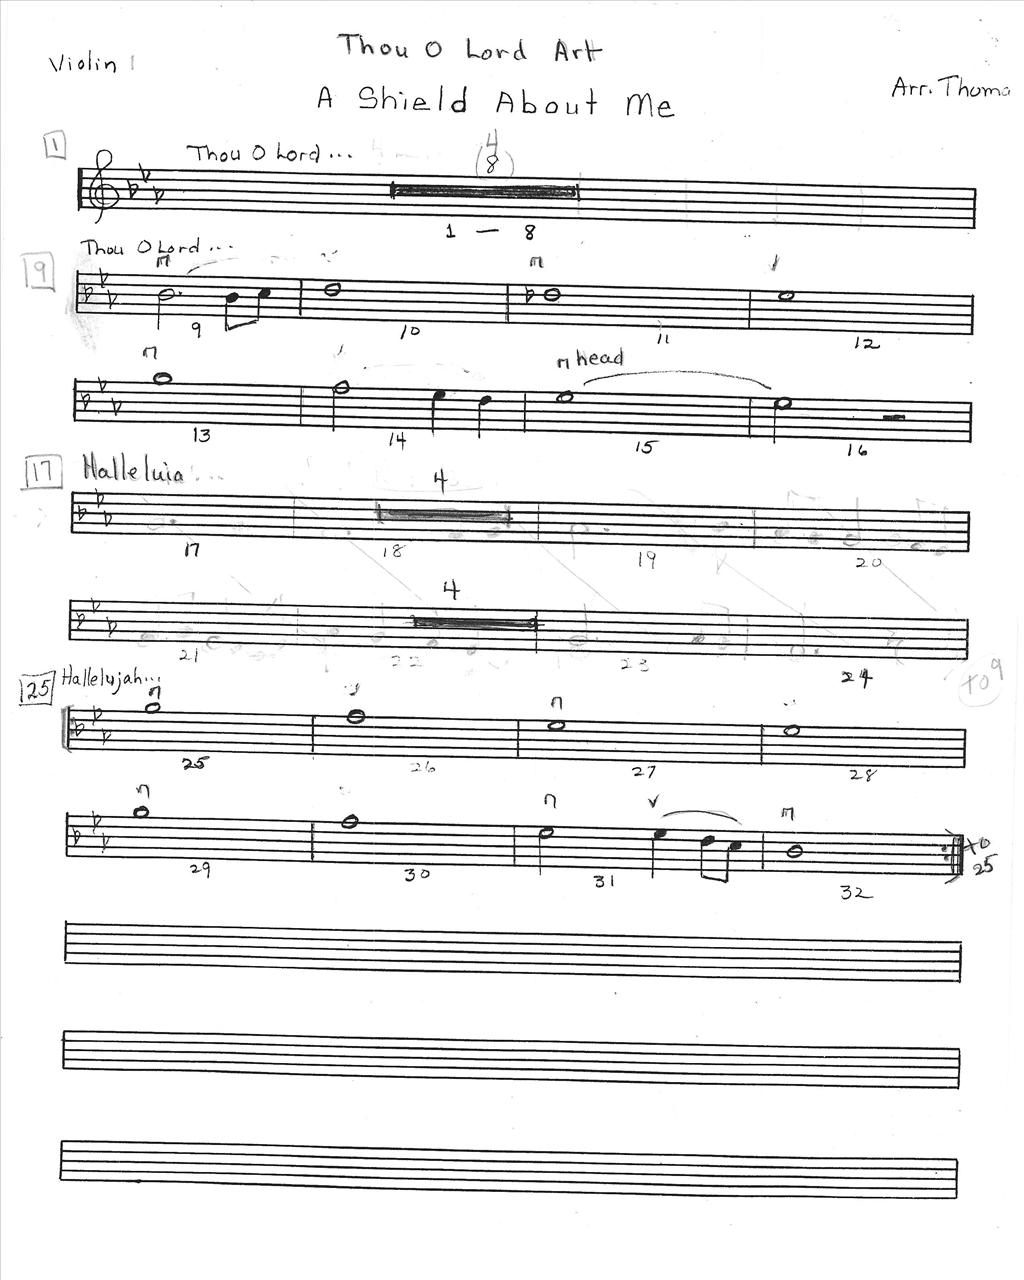 Thou O Lord Art
Violin 1
A Shield About Me
Arr. Thoma
1
Thou O Lord...
4
(8)
1 — 8
Thou O Lord...
9
9 10 11 12
head
13 14 15 16
17 Halleluia...
4
17 18 19 20
4
21 22 23 24
to 9
25 Hallelujah...
25 26 27 28
29 30 31 32
to
25